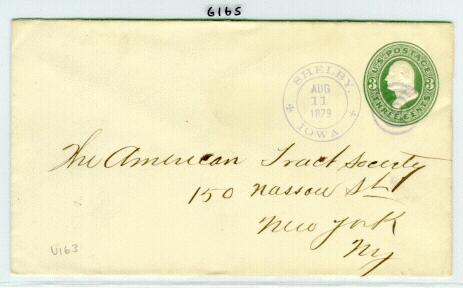 6165
SHELBY
AUG
11
1879
IOWA
U.S. POSTAGE
3 3
THREE CENTS
The American Tract Society
150 Nassau St
New York
Ny
U163